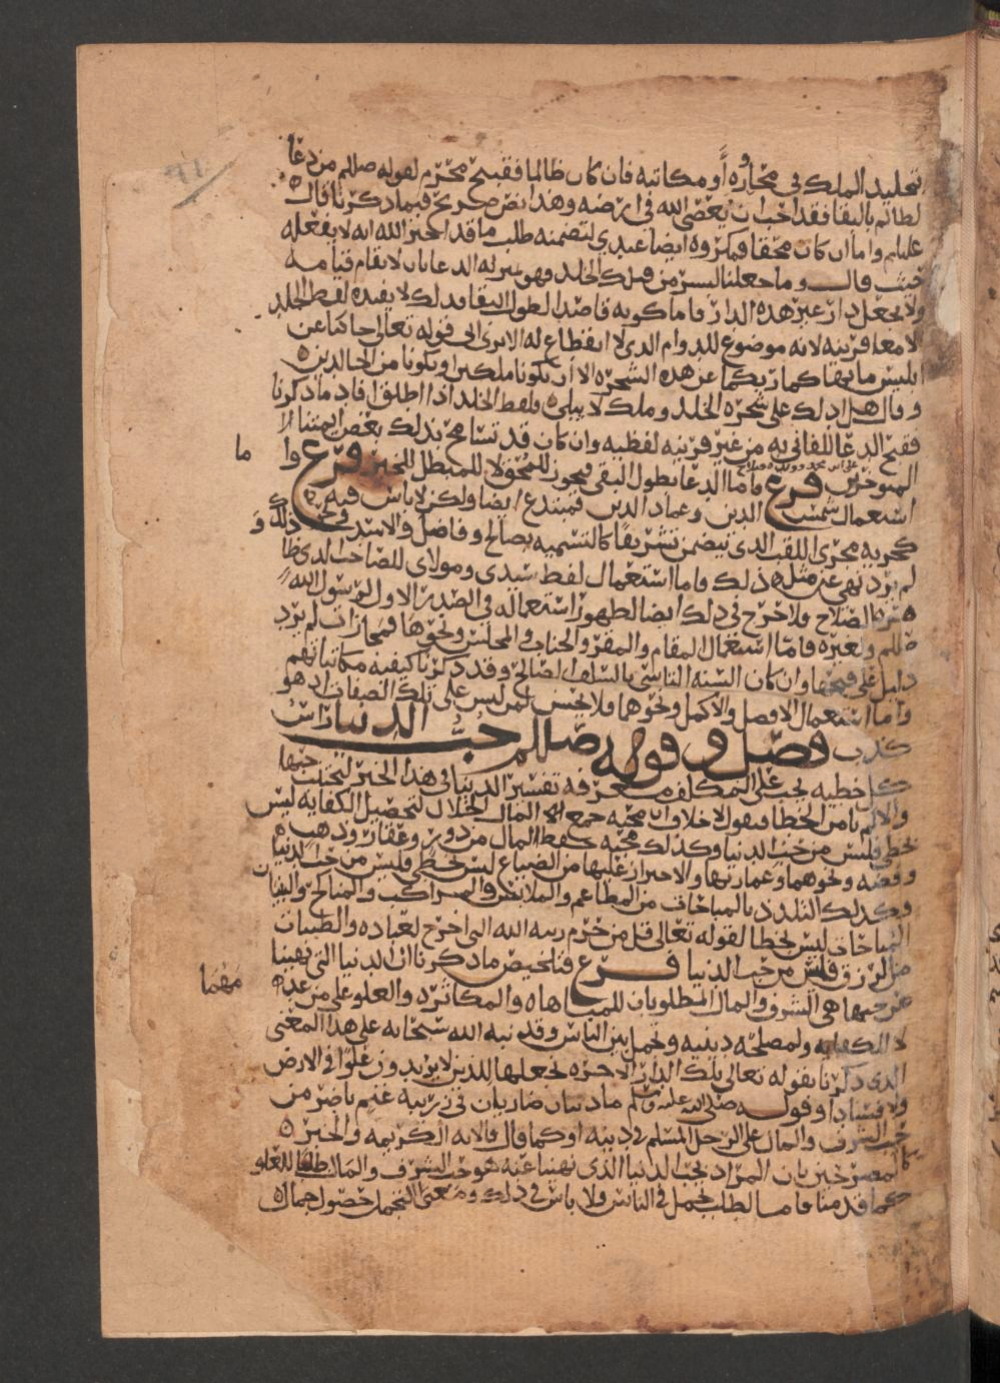 تخليد الملك في محاوره أو مكاتبه فان كان ظالما فقبيح محرم لقوله صللم من دعا
لظالم بالبقا فقد احب ان يعصى الله في ارضه وهذا نص صريح فيما ذكرنا قال
عليلم واما ان كان محقا فمكروه ايضا عندي لتضمنه طلب ما قد اخبر الله انه لا يفعله
حيث قال وما جعلنا لبشر من قبلك الخلد فهو بمنزله الدعا بان لا تقام قيامه
ولا يجعل دار غير هذه الدار فاما كونه قاصدا لطول البقا فذلك لا يفيده لفظ الخلد
الا مع قرينه لانه موضوع للدوام الذي لا انقطاع له الا ترى الى قوله تعالى حاكيا عن
ابليس ما نهاكما ربكما عن هذه الشجره الا ان تكونا ملكين او تكونا من الخالدين
وقال هل ادلك على شجره الخلد وملك لا يبلى فلفظ الخلد اذا اطلق افاد ما ذكرنا
فقبح الدعا للفاني به من غير قرينه لفظيه وان كان قد تسامح بذلك بعض ايمتنا
المتوخرين فرع واما الدعا بطول البقى فيجوز للمحق لا للمبطل للخبر فرع وا
ما
استعمال شمس الدين وعماد الدين فمبتدع ايضا ولكن لا باس فيه
كجريه مجرى اللقب الذي تيضمن تشريفا كالتسميه بصالح وفاضل والاسد في ذلك و
لم يرد نهي عن مثل ذلك فاما استعمال لفظ سيدي ومولاي للصاحب الذي ظا
هره الصلاح فلا حرج في ذلك ايضا لظهور استعماله في الصدر الاول لرسول الله
صللم ولغيره فاما استعمال المقام والمقر والجناب والمجلس ونحوها فمجاز ات لم يرد
دليل على قبحها وان كان السنه التاسي بالسلف الصالح وقد ذكرنا كيفيه مكاتباتهم
واما استعمال الافضل والاكمل ونحوهما فلا يحسن لمن ليس على تلك الصفات اذ هو
كذب فصل وقوله صللم حب الدنيا راس
كل خطيه يجب على المكلف معرفه تفسير الدنيا في هذا الخبر ليجتنب حبها
والا لم يامن الخطا فنقول لا خلاف ان محبه جمع المال الحلال لتحصيل الكفايه ليس
بخطى فليس من حب الدنيا وكذلك محبه حفظ المال من دور وعقار وذهب
وفضه ونحوهما وعمارتها والاحتراز عليها من الضياع ليس بخطى فليس من حب الدنيا
وكذلك التلذذ بالمباحات من المطاعم والملابس والمراكب والمناكح والبنيان
المباحات ليس بخطا لقوله تعالى قل من حرم زينه الله التي اخرج لعباده والطيبات
من الرزق فليس من حب الدنيا فرع فتلخيص ما ذكرنا ان الدنيا التي نهينا
عن حبها هي الشرف والمال المطلوبان للمباهاه والمكاثره والعلو على من عداه
مهما
لا للكفايه ولمصلحه دينيه وتجمل بين الناس وقد نبه الله سبحانه على هذا المعنى
الذي ذكرنا بقوله تعالى تلك الدار الاخره نجعلها للذين لا يريدون علوا في الارض
ولا فسادا وقوله صلى الله عليه وسلم ما ذئبان ضاريان في زريبه غنم باضر من
حب الشرف والمال على الرجل المسلم في دينه او كما قال فالايه الكريمه والخبر
كالمصرحين بان المراد بحب الدنيا الذي نهينا عنه هو حب الشرف والمال للعلو
كما قدمنا فاما لطلب تجمل في الناس فلا باس في ذلك ومعنى التجمل حصول جمال